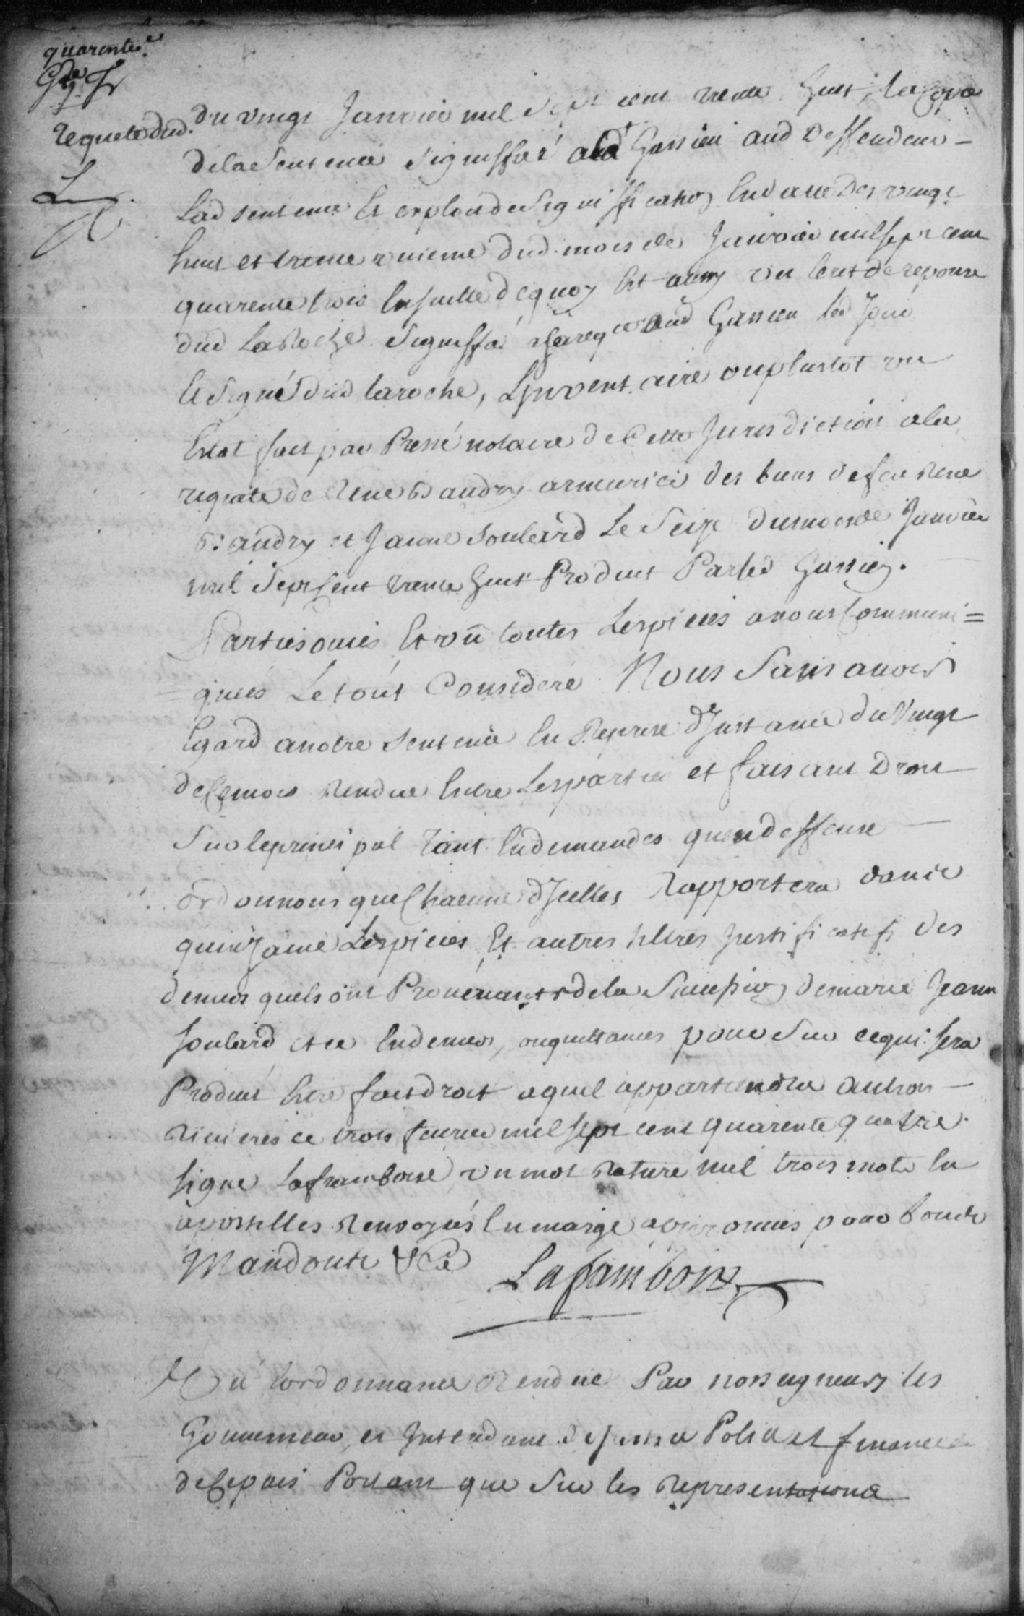 quarente
requete dud.
du vingt Janvier mil Sept cent trente huit, la copie
de la Sentence Signiffié aud Gassien aud deffendeur
Lad sentence Et exploit de Signiffication En datte des vingt
huit et trente unieme dud mois de Janvier mil sept cent
quarente trois Ensuitte de quoy Est aussy un Ecrit de reponse
dud Laroche Signiffié aud Gassien led Jour
Et Signé dud laroche, Linventaire ou plustot un
Etat fait par Pressé notaire de Cette Jurisdiction a la
requete de Rene Baudry armurier des biens de feu Rene
Baudry et Jeanne Soulard Le Seize du mois de Janvier
mil Sept Cent trente huit Produit Par led Gassien.
Parties ouies Et vû toutes Les pieces a nous Communi=
quées Le tout Consideré Nous Sans avoir
Egard a notre Sentence En Reprise d'Instance du Vingt
de Ce mois Rendue Entre Les parties et faisant Droit
Sur le principal tant En demandes quen deffense
ordonnons que Chacune d'Icelles Rapportera dans
quinzaine Les pieces Et autres tiltres Justificatifs des
deniers quels ont Provenants de la Succession de marie Jeanne
Soulard et ce En deniers, ou quittances pour Sur ce qui Sera
Produit Etre fait droit a quil appartiendra aux trois
Rivieres ce trois fevrier mil sept cent quarente quatre.
signé Laframboise, un mot Raturé nul trois mots En
apostilles Renvoyés En marge approuvés pour bons
Mandons &Ca
Laframboise
Vu l'ordonnance Rendue Par nosseigneurs les
Gouverneur, et Intendant de Justice Police et finance
de Ce pais Portant que Sur les Representations